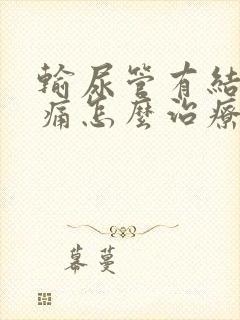 輸尿管有結
痛怎麼治療
幕蔓